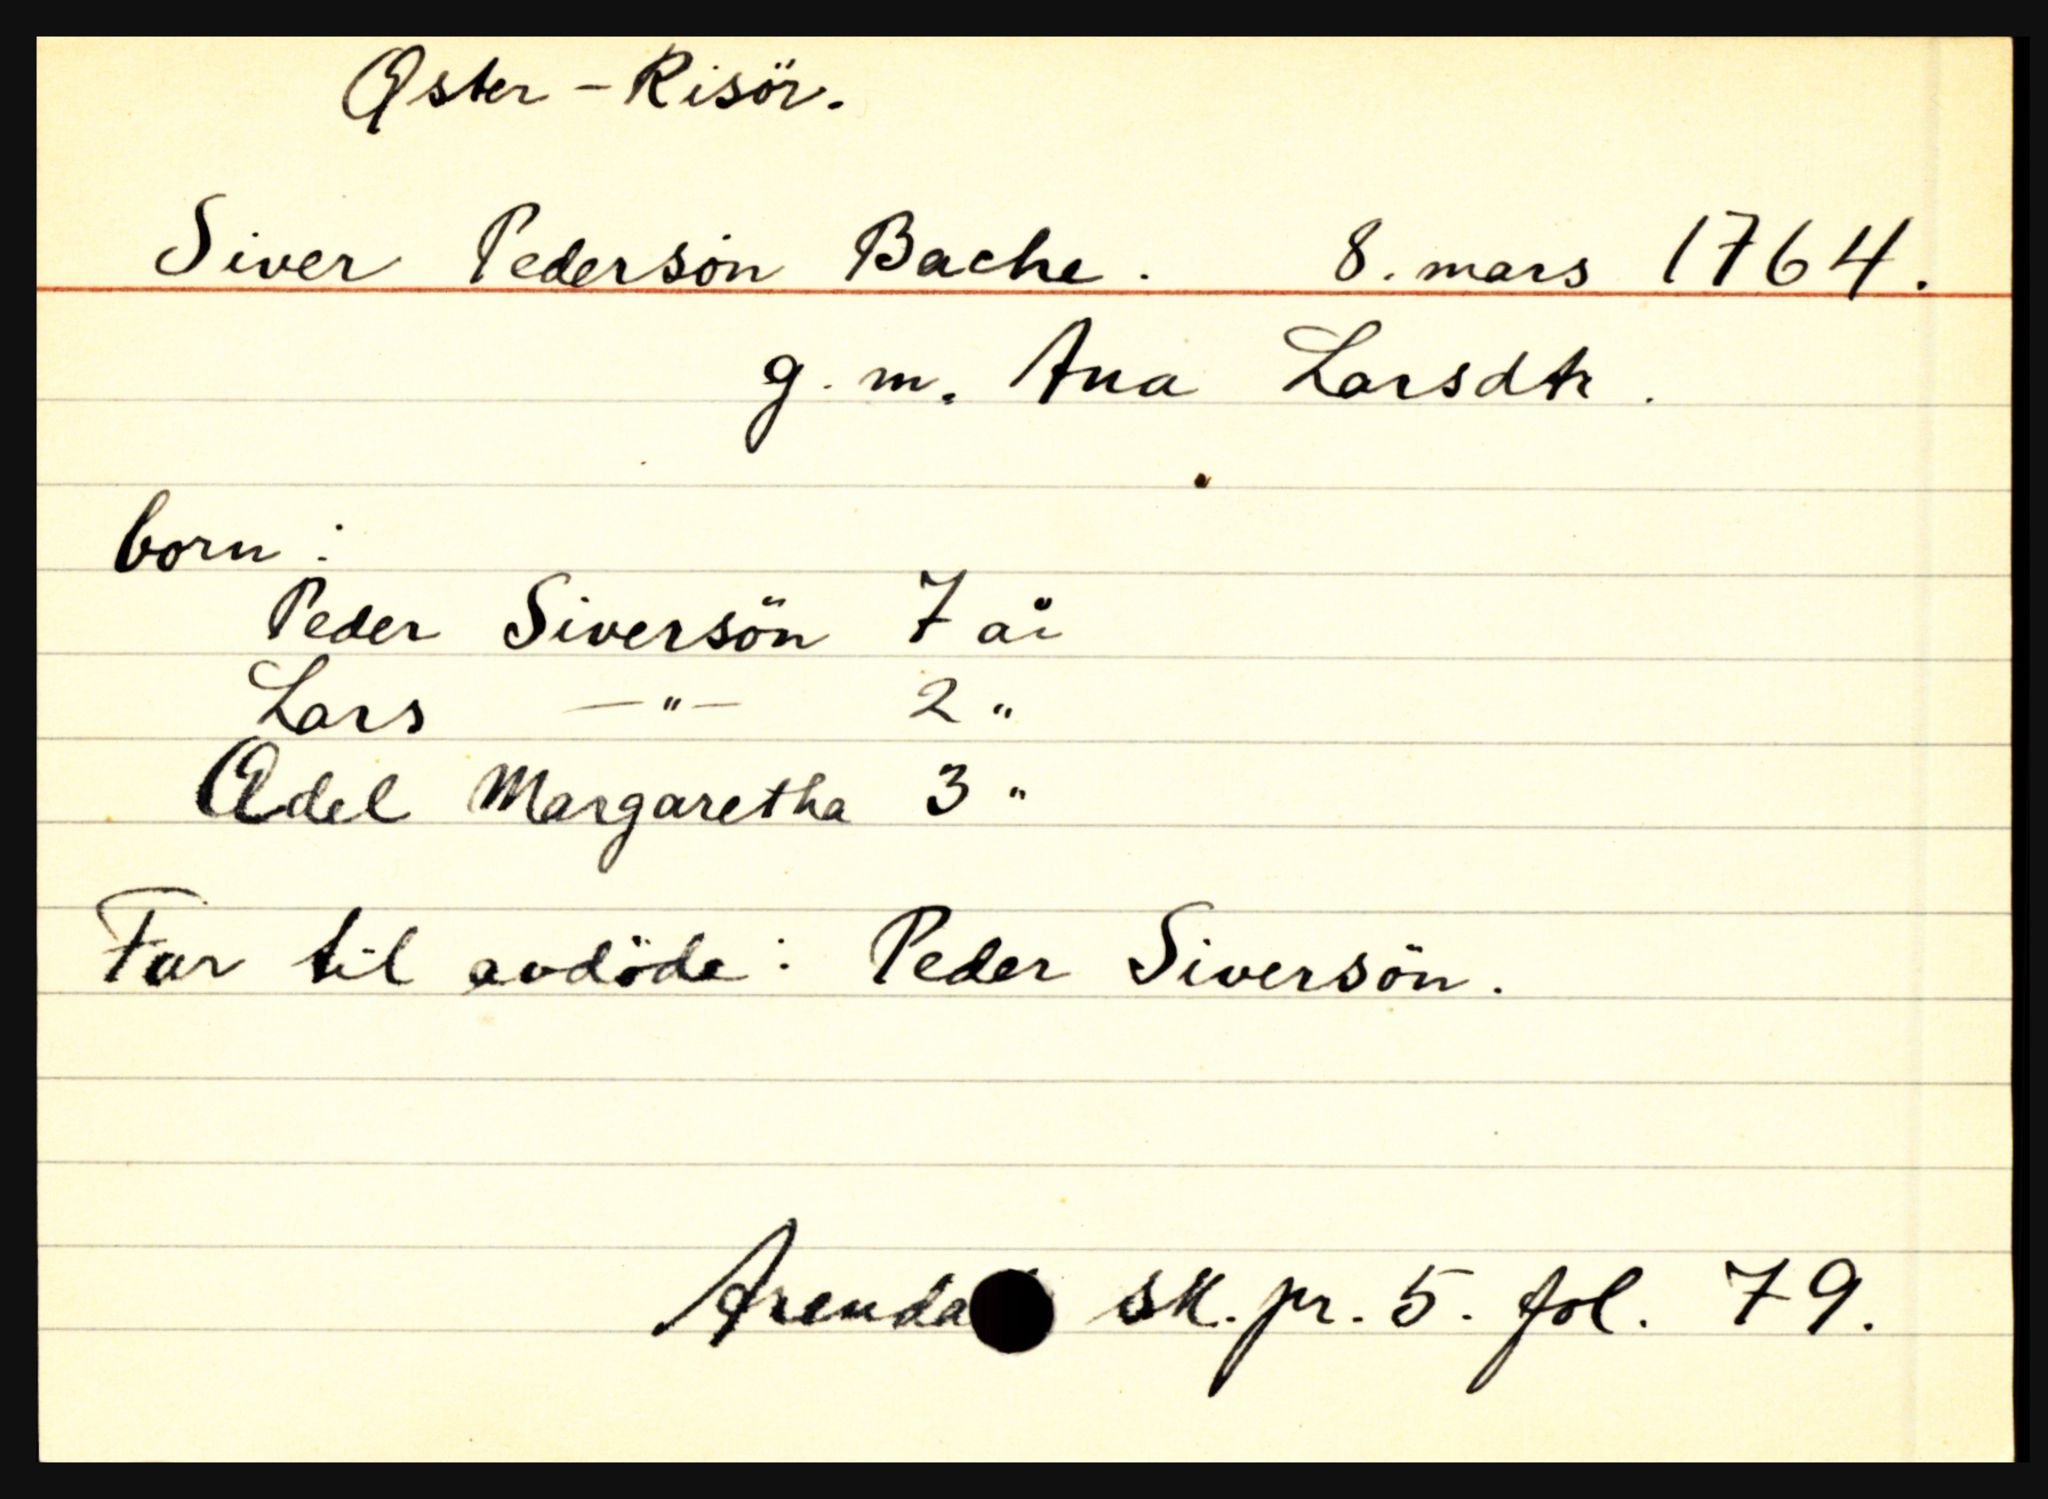 Øster - Risör.
Siver Pedersön Bache. 8. mars 1764.
g. m. Ana Larsdtr.
born:
Peder Siversön 7 år
Lars —"— 2 "
Adel Margaretha 3 "
Far til avdöde: Peder Siversön.
Arenda sk. pr. 5. fol. 79.